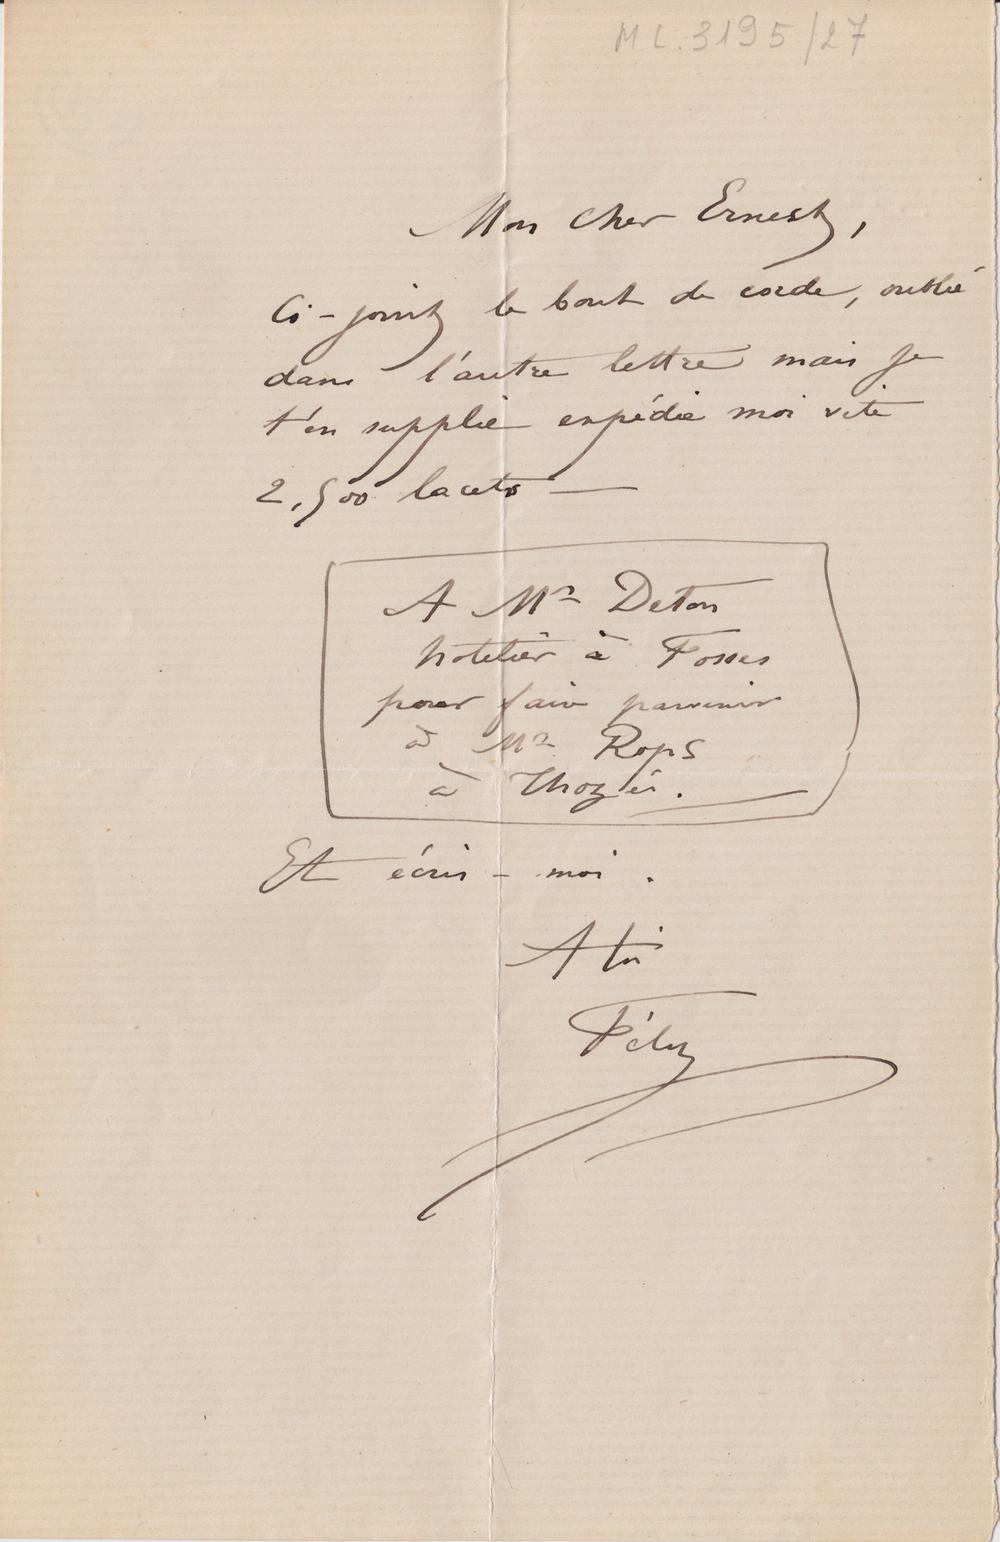 ML.3195/27
Mon cher Ernest,
Ci-joint le bout de corde, oublié
dans l'autre lettre mais je
t'en supplie expédie moi vite
2,500 lacets —
A Mr Deton
hotelier à Fosses
pour faire parvenir
à Mr Rops
à Thozée.
Et écris-moi.
A toi
Félix